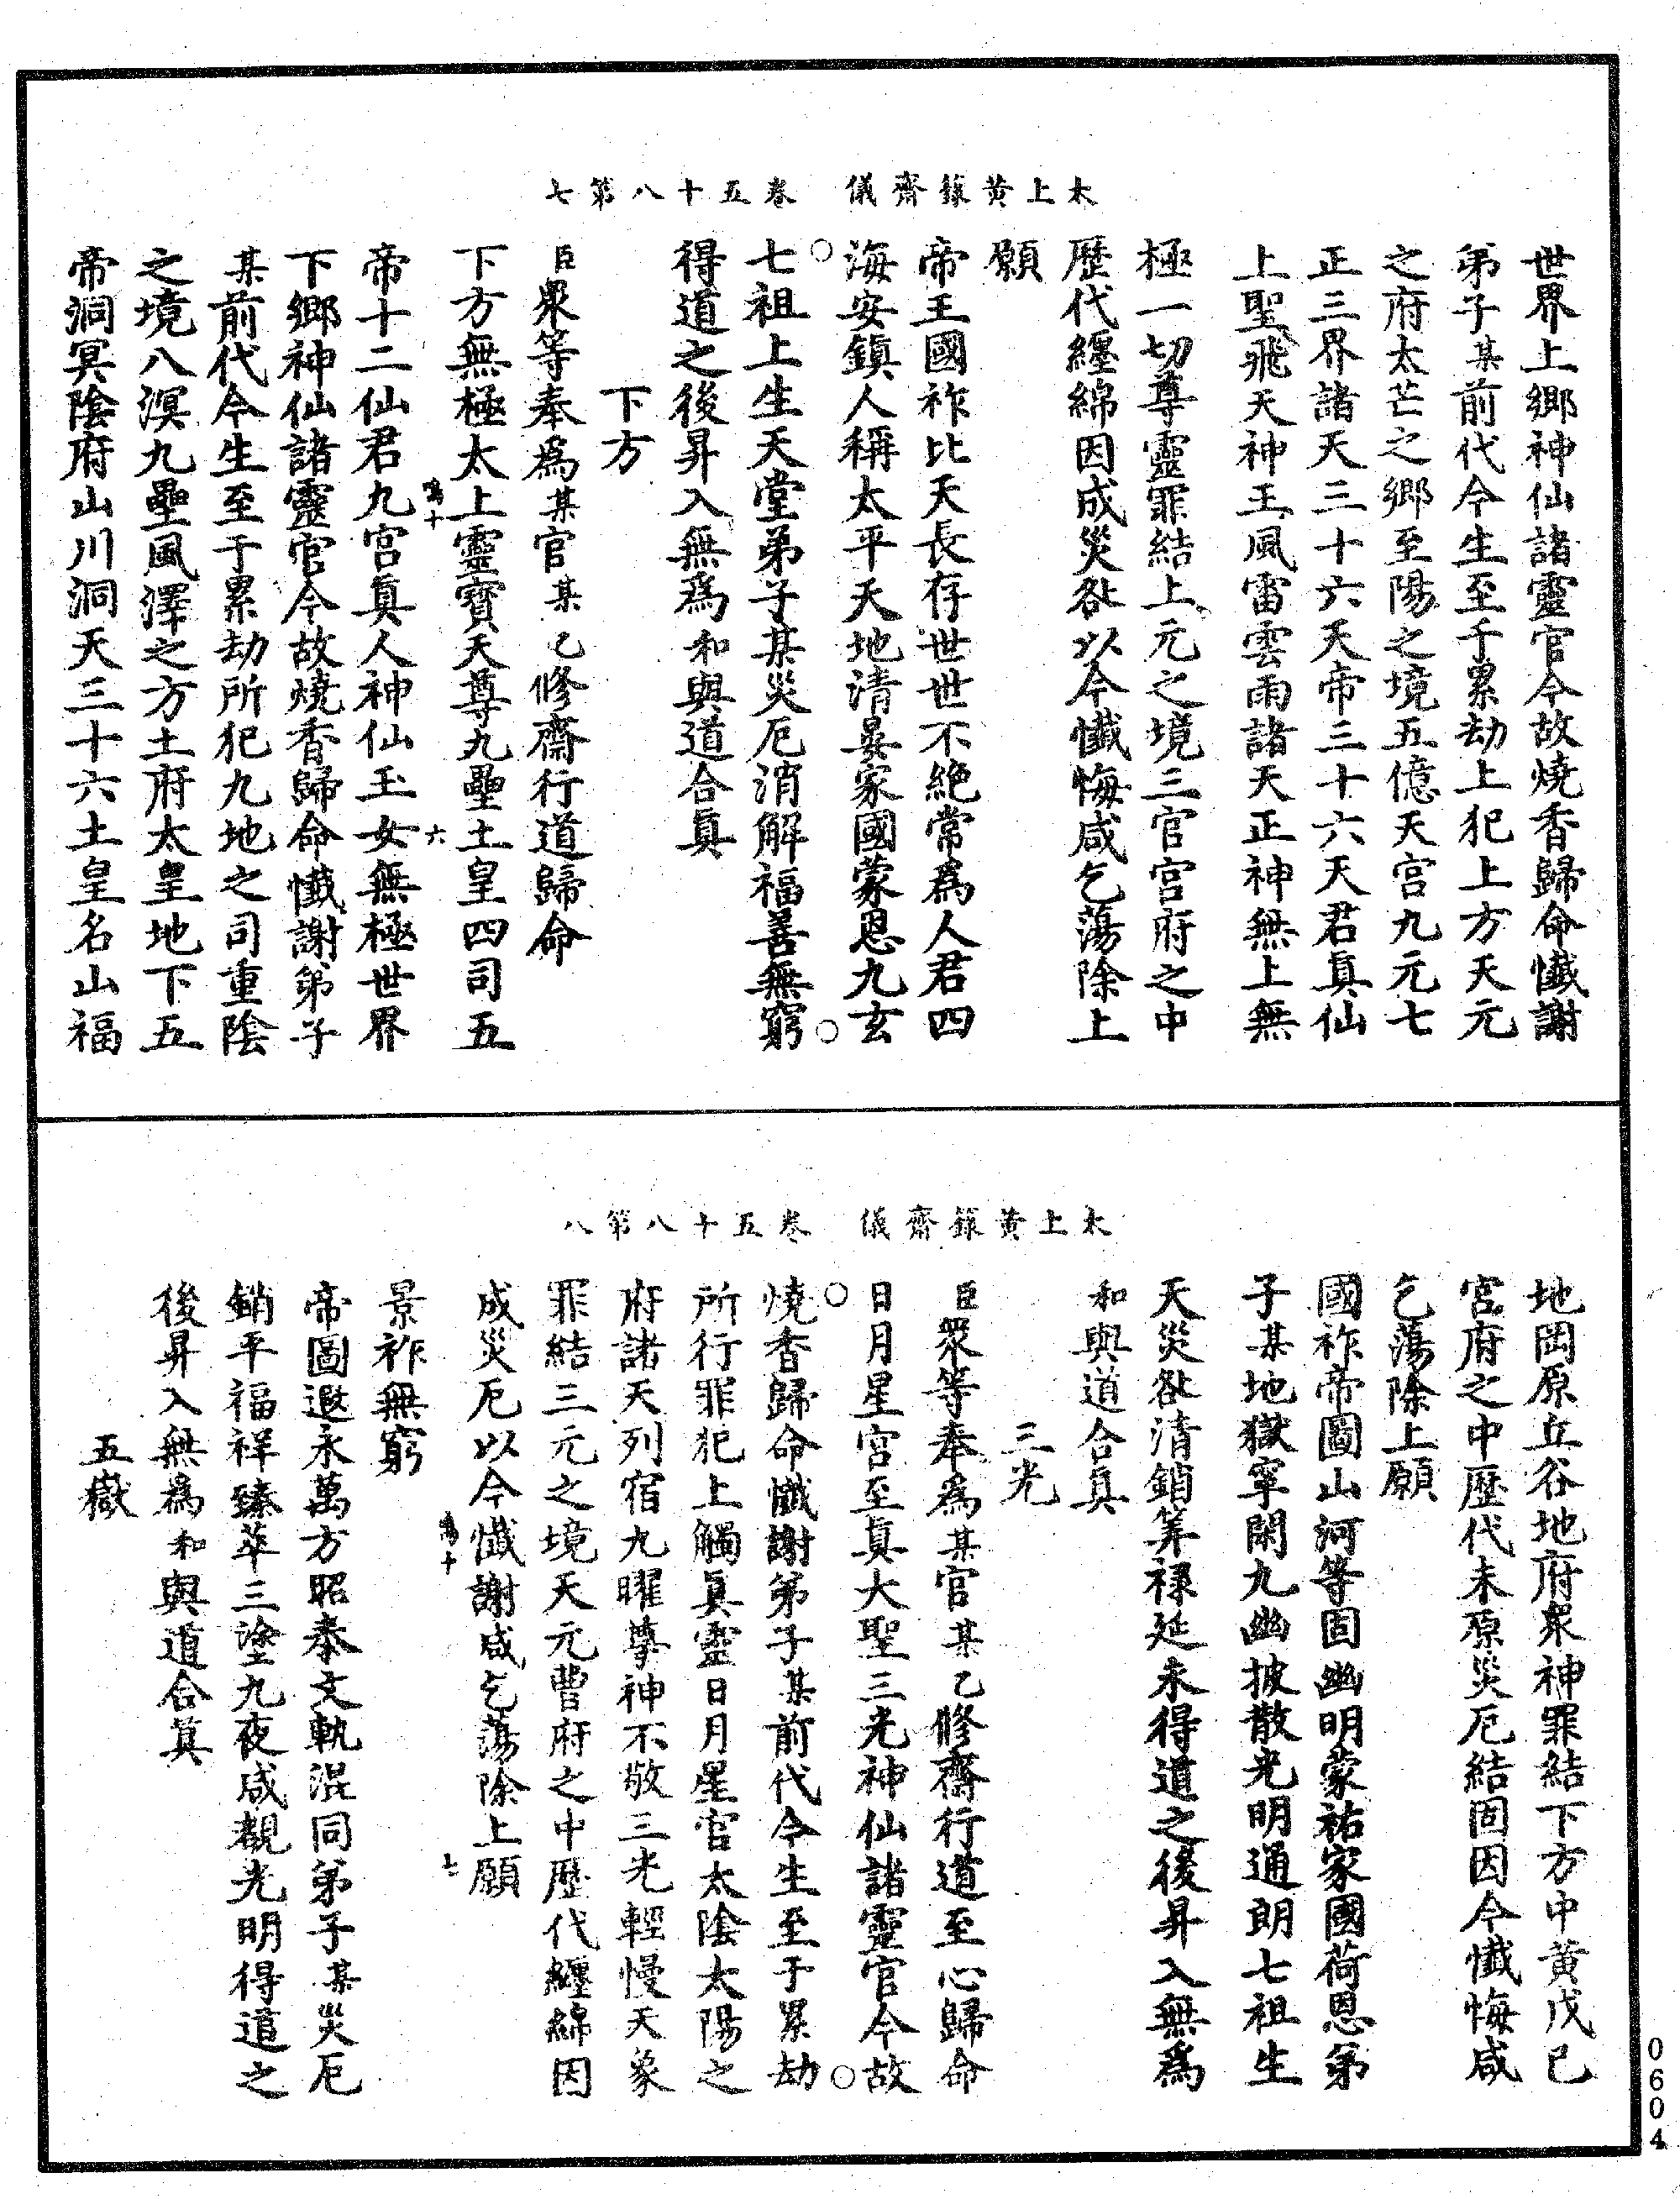 太上黄籙齋儀　卷五十八第七
世界上郷神仙諸靈官今故燒香歸命懴謝
弟子某前代今生至于累劫上犯上方天元
之府太芒之郷至陽之境五億天宫九元七
正三界諸天三十六天帝三十六天君眞仙
上聖飛天神王風雷雲雨諸天正神無上無
極一切尊靈罪結上元之境三官宫府之中
歷代纏綿因成災咎以今懴悔咸乞蕩除上
願
帝王國祚比天長存世世不絶常爲人君四
海安鎮人稱太平天地清晏家國蒙恩九玄
七祖上生天堂弟子某災厄消解福善無窮
得道之後昇入無爲和與道合眞
下方
臣衆等奉爲某官某乙修齋行道歸命
下方無極太上靈寶天尊九壘土皇四司五
帝十二仙君九宫眞人神仙玉女無極世界
鳴十　六
下郷神仙諸靈官今故燒香歸命懴謝弟子
某前代今生至于累劫所犯九地之司重陰
之境八溟九壘風澤之方土府太皇地下五
帝洞冥陰府山川洞天三十六土皇名山福
太上黄籙齋儀　卷五十八第八
地岡原丘谷地府衆神罪結下方中黄戊己
宫府之中歷代未原災厄結固因今懴悔咸
乞蕩除上願
國祚帝圖山河等固幽明蒙祐家國荷恩弟
子某地獄寜閑九幽披散光明通朗七祖生
天災咎清銷筭禄延未得道之後昇入無爲
和與道合眞
三光
臣衆等奉爲某官某乙修齋行道至心歸命
日月星宫至眞大聖三光神仙諸靈官今故
燒香歸命懴謝弟子某前代今生至于累劫
所行罪犯上觸眞靈日月星官太陰太陽之
府諸天列宿九曜尊神不敬三光輕慢天象
罪結三元之境天元曹府之中歷代纏綿因
成災厄以今懴謝咸乞蕩除上願
鳴十　七
景祚無窮
帝圖遐永萬方昭泰文軌混同弟子某災厄
銷平福祥臻萃三塗九夜咸覩光明得道之
後昇入無爲和與道合眞
五嶽
0604